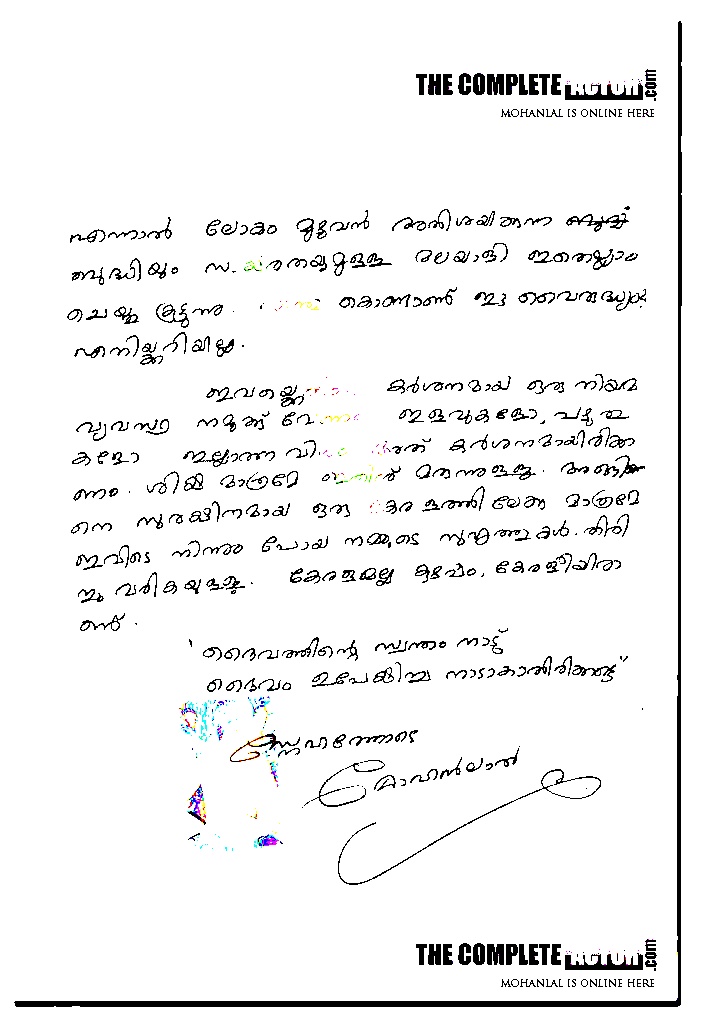 THE COMPLETE ACTOR .com
MOHANLAL IS ONLINE HERE
എന്നാൽ ലോകം മുഴുവൻ അതിശയിക്കുന്ന
ബുദ്ധിയും മുള്ള മലയാളി ഇതെല്ലാം
ചെയ്തു കൂട്ടുന്നു. കൊണ്ടാണ് ഈ വൈരുദ്ധ്യം?
എനിയ്ക്കറിയില്ല.
കർശനമായ ഒരു നിയമ
വ്യവസ്ഥ നമുക്ക് ഇളവുകളോ, പഴുതു
കളോ ഇല്ലാത്ത അത് കർശനമായിരിക്ക
ണം. ശിക്ഷ മാത്രമേ ഇതിന് മരുന്നുള്ളൂ. അങ്ങി
നെ സുരക്ഷിതമായ ഒരു കേരളത്തിലേക്കു മാത്രമേ
ഇവിടെ നിന്നും പോയ നമ്മുടെ സുഹൃത്തുകൾ തിരി
ച്ചു വരികയുള്ളൂ. കേരളമല്ല കുഴപ്പം, കേരളീയരാ
ണ്.
'ദൈവത്തിന്റെ സ്വന്തം നാട്ട്
ദൈവം ഉപേക്ഷിച്ച നാടാകാതിരിക്കട്ടെ'
സ്നേഹത്തോടെ
മോഹൻലാൽ
THE COMPLETE ACTOR .com
MOHANLAL IS ONLINE HERE